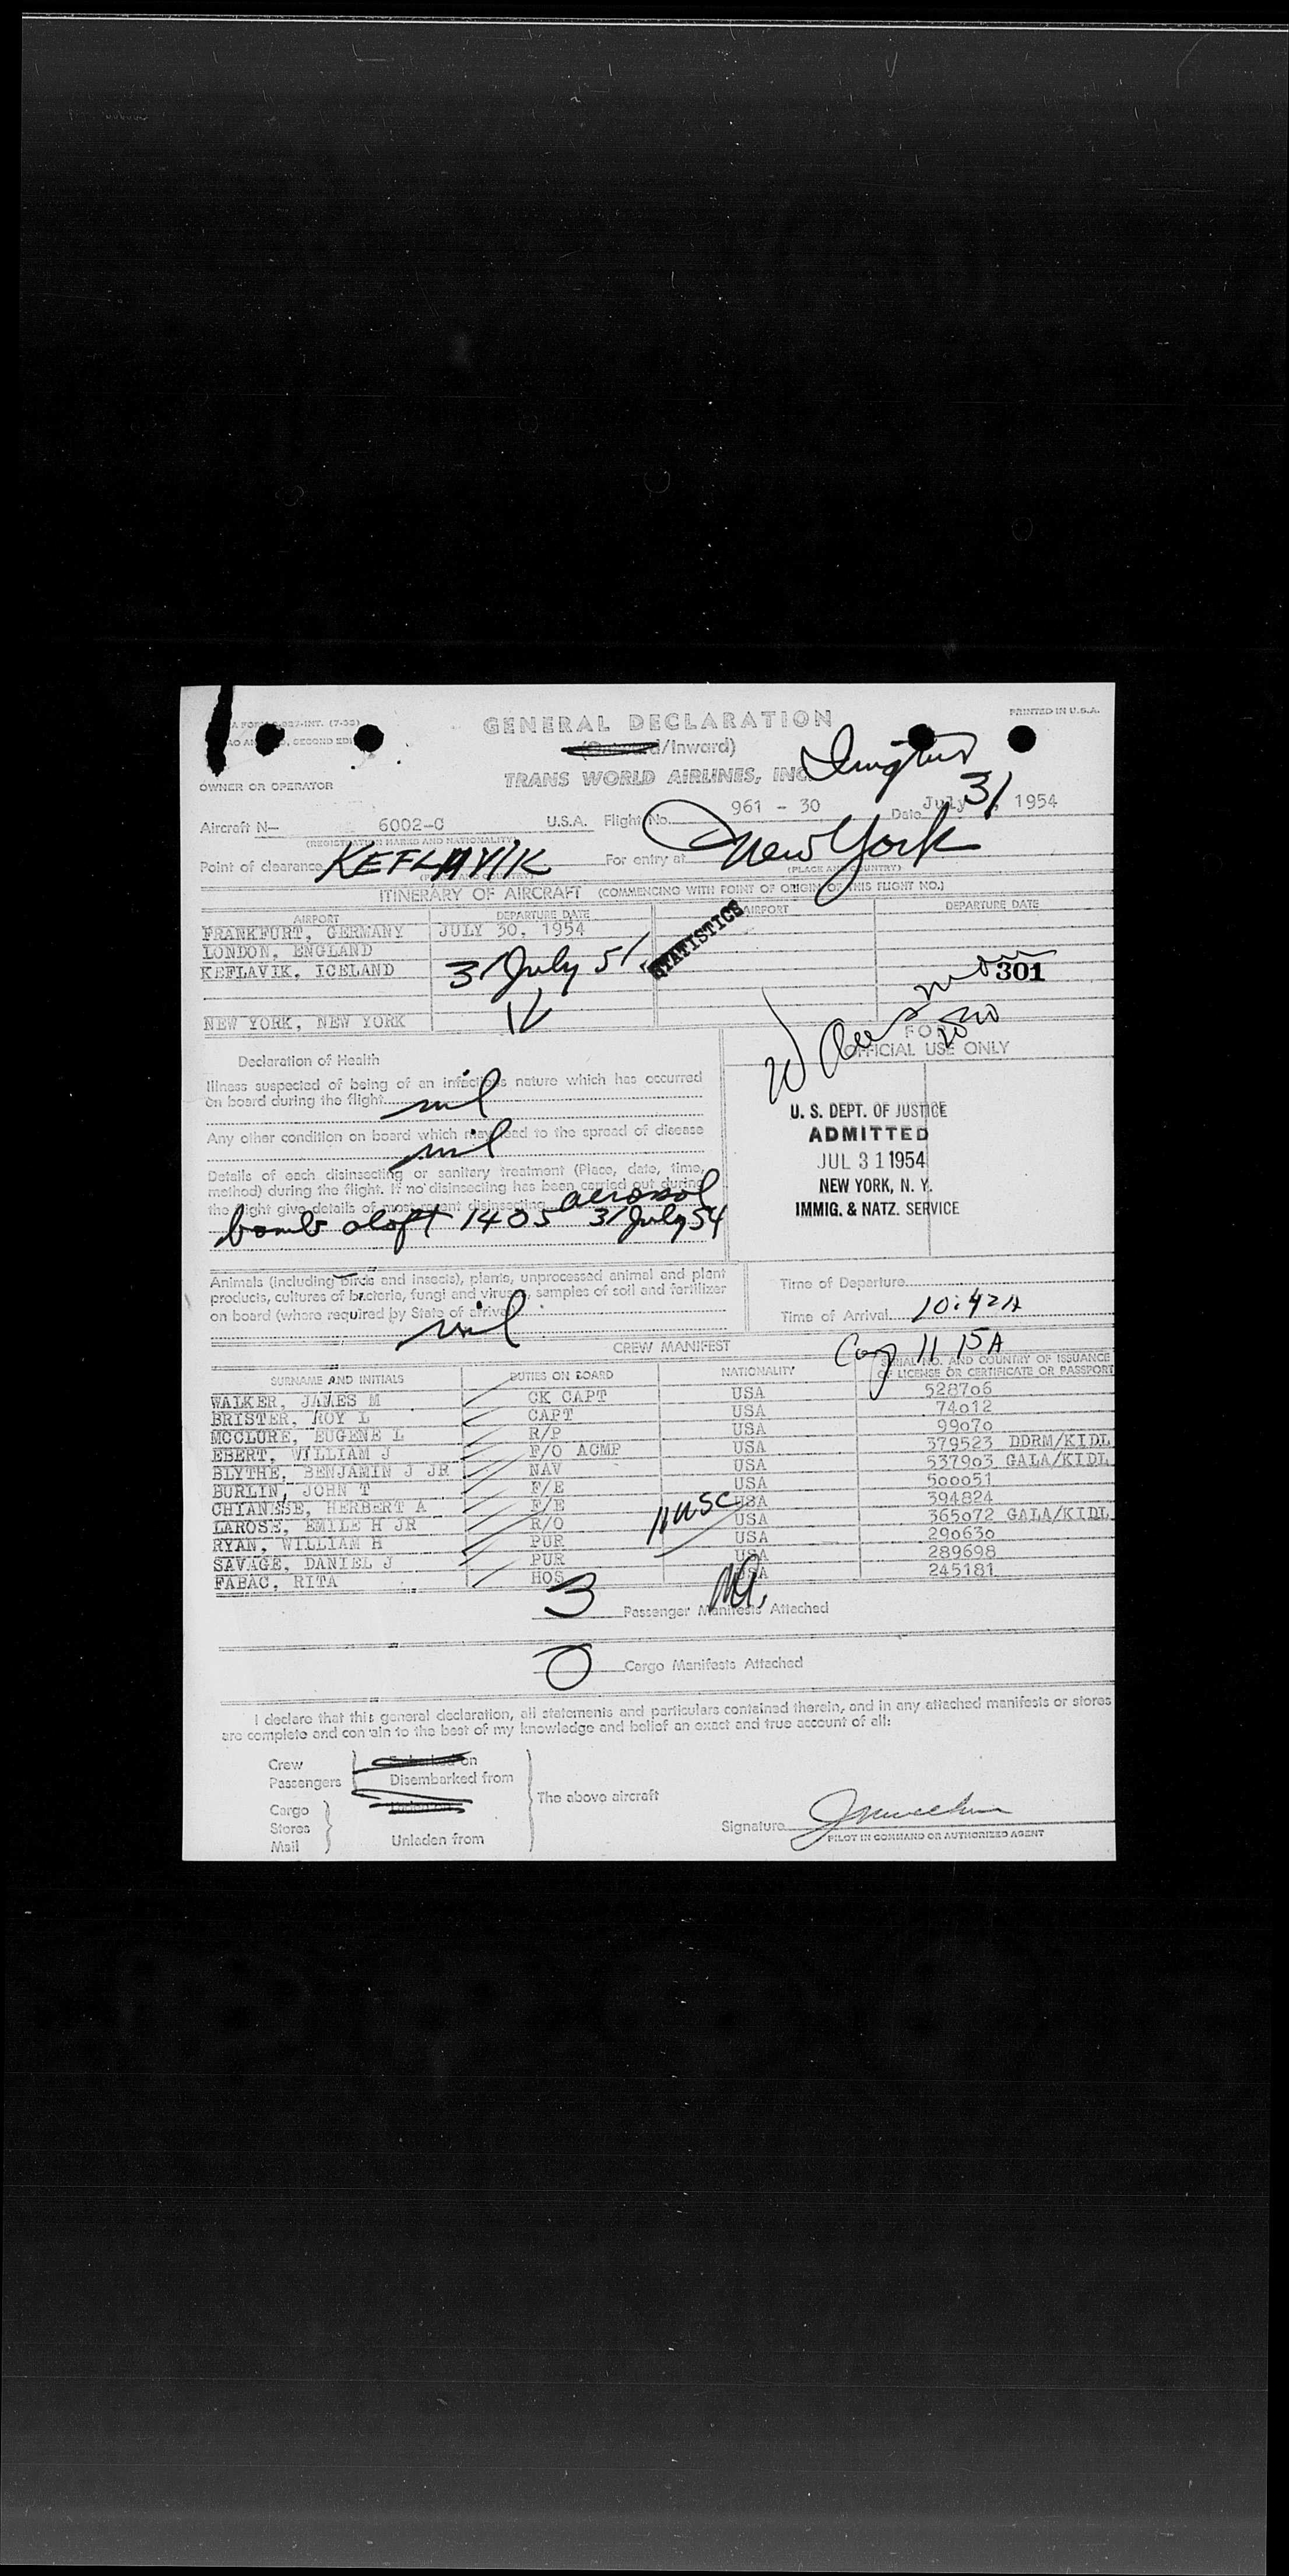 PRINTED IN U.S.A.
GENERAL DECLARATION
/Inward)
TRANS WORLD AIRLINES, INC.
OWNER OR OPERATOR
Aircraft N— 6002-C U.S.A. Flight No. 961 - 30 Date July 31, 1954
(REGISTRATION MARKS AND NATIONALITY)
Point of clearance KEFLAVIK For entry at New York
(PLACE AND COUNTRY)
ITINERARY OF AIRCRAFT (COMMENCING WITH POINT OF ORIGIN OF THIS FLIGHT NO.)
AIRPORT DEPARTURE DATE AIRPORT DEPARTURE DATE
FRANKFURT, GERMANY JULY 30, 1954
LONDON, ENGLAND
KEFLAVIK, ICELAND 31 July 51
STATISTICS
301
NEW YORK, NEW YORK
FOR
OFFICIAL USE ONLY
Declaration of Health
Illness suspected of being of an infectious nature which has occurred
on board during the flight nil
Any other condition on board which may lead to the spread of disease
nil
Details of each disinsecting or sanitary treatment (Place, date, time,
method) during the flight. If no disinsecting has been carried out during
the flight give details of most recent disinsecting aerosol
bomb aloft 1405 31 July 54
U. S. DEPT. OF JUSTICE
ADMITTED
JUL 31 1954
NEW YORK, N. Y.
IMMIG. & NATZ. SERVICE
Animals (including birds and insects), plants, unprocessed animal and plant
products, cultures of bacteria, fungi and viruses, samples of soil and fertilizer
on board (where required by State of arrival)
nil
Time of Departure
Time of Arrival 10:42A
11 15A
CREW MANIFEST
SURNAME AND INITIALS DUTIES ON BOARD NATIONALITY SERIAL NO. AND COUNTRY OF ISSUANCE
OF LICENSE OR CERTIFICATE OR PASSPORT
WALKER, JAMES M CK CAPT USA 528706
BRISTER, ROY L CAPT USA 74012
MCCLURE, EUGENE L R/P USA 99070
EBERT, WILLIAM J F/O ACMP USA 379523 DDRM/KIDL
BLYTHE, BENJAMIN J JR NAV USA 537903 GALA/KIDL
BURLIN, JOHN T F/E USA 500051
CHIANESE, HERBERT A F/E USA 394824
LAROSE, EMILE H JR R/O USA 365072 GALA/KIDL
RYAN, WILLIAM H PUR USA 290630
SAVAGE, DANIEL J PUR USA 289698
FABAC, RITA HOS USA 245181
11 USC
3 Passenger Manifests Attached
0 Cargo Manifests Attached
I declare that this general declaration, all statements and particulars contained therein, and in any attached manifests or stores
are complete and contain to the best of my knowledge and belief an exact and true account of all:
Crew
Passengers Disembarked from
The above aircraft
Cargo
Stores
Mail Unladen from
Signature
PILOT IN COMMAND OR AUTHORIZED AGENT